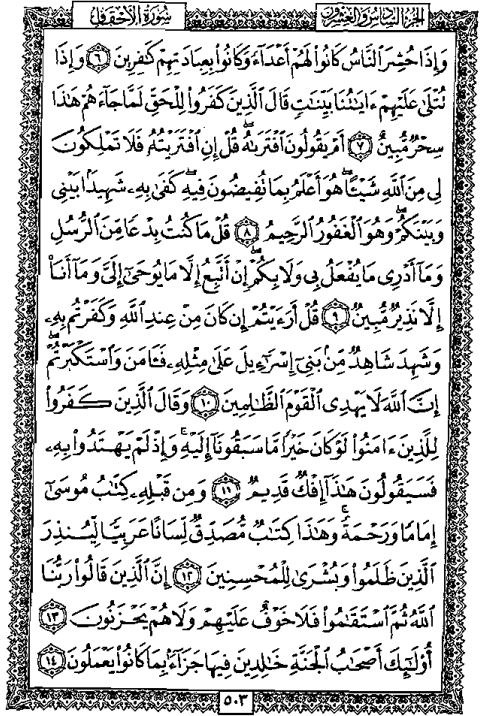 الجزء السادس والعشرون
سورة الأحقاف
وَإِذَا حُشِرَ ٱلنَّاسُ كَانُوا۟ لَهُمْ أَعْدَآءً وَكَانُوا۟ بِعِبَادَتِهِمْ كَـٰفِرِينَ ٦ وَإِذَا
تُتْلَىٰ عَلَيْهِمْ ءَايَـٰتُنَا بَيِّنَـٰتٍ قَالَ ٱلَّذِينَ كَفَرُوا۟ لِلْحَقِّ لَمَّا جَآءَهُمْ هَـٰذَا
سِحْرٌ مُّبِينٌ ٧ أَمْ يَقُولُونَ ٱفْتَرَىٰهُ ۖ قُلْ إِنِ ٱفْتَرَيْتُهُۥ فَلَا تَمْلِكُونَ
لِى مِنَ ٱللَّهِ شَيْـًٔا ۖ هُوَ أَعْلَمُ بِمَا تُفِيضُونَ فِيهِ ۖ كَفَىٰ بِهِۦ شَهِيدًۢا بَيْنِى
وَبَيْنَكُمْ ۖ وَهُوَ ٱلْغَفُورُ ٱلرَّحِيمُ ٨ قُلْ مَا كُنتُ بِدْعًا مِّنَ ٱلرُّسُلِ
وَمَآ أَدْرِى مَا يُفْعَلُ بِى وَلَا بِكُمْ ۖ إِنْ أَتَّبِعُ إِلَّا مَا يُوحَىٰٓ إِلَىَّ وَمَآ أَنَا۠
إِلَّا نَذِيرٌ مُّبِينٌ ٩ قُلْ أَرَءَيْتُمْ إِن كَانَ مِنْ عِندِ ٱللَّهِ وَكَفَرْتُم بِهِۦ
وَشَهِدَ شَاهِدٌ مِّنۢ بَنِىٓ إِسْرَٰٓءِيلَ عَلَىٰ مِثْلِهِۦ فَـَٔامَنَ وَٱسْتَكْبَرْتُمْ ۖ
إِنَّ ٱللَّهَ لَا يَهْدِى ٱلْقَوْمَ ٱلظَّـٰلِمِينَ ١٠ وَقَالَ ٱلَّذِينَ كَفَرُوا۟
لِلَّذِينَ ءَامَنُوا۟ لَوْ كَانَ خَيْرًا مَّا سَبَقُونَآ إِلَيْهِ ۚ وَإِذْ لَمْ يَهْتَدُوا۟ بِهِۦ
فَسَيَقُولُونَ هَـٰذَآ إِفْكٌ قَدِيمٌ ١١ وَمِن قَبْلِهِۦ كِتَـٰبُ مُوسَىٰٓ
إِمَامًا وَرَحْمَةً ۚ وَهَـٰذَا كِتَـٰبٌ مُّصَدِّقٌ لِّسَانًا عَرَبِيًّا لِّيُنذِرَ
ٱلَّذِينَ ظَلَمُوا۟ وَبُشْرَىٰ لِلْمُحْسِنِينَ ١٢ إِنَّ ٱلَّذِينَ قَالُوا۟ رَبُّنَا
ٱللَّهُ ثُمَّ ٱسْتَقَـٰمُوا۟ فَلَا خَوْفٌ عَلَيْهِمْ وَلَا هُمْ يَحْزَنُونَ ١٣
أُو۟لَـٰٓئِكَ أَصْحَـٰبُ ٱلْجَنَّةِ خَـٰلِدِينَ فِيهَا جَزَآءًۢ بِمَا كَانُوا۟ يَعْمَلُونَ ١٤
٥٠٣